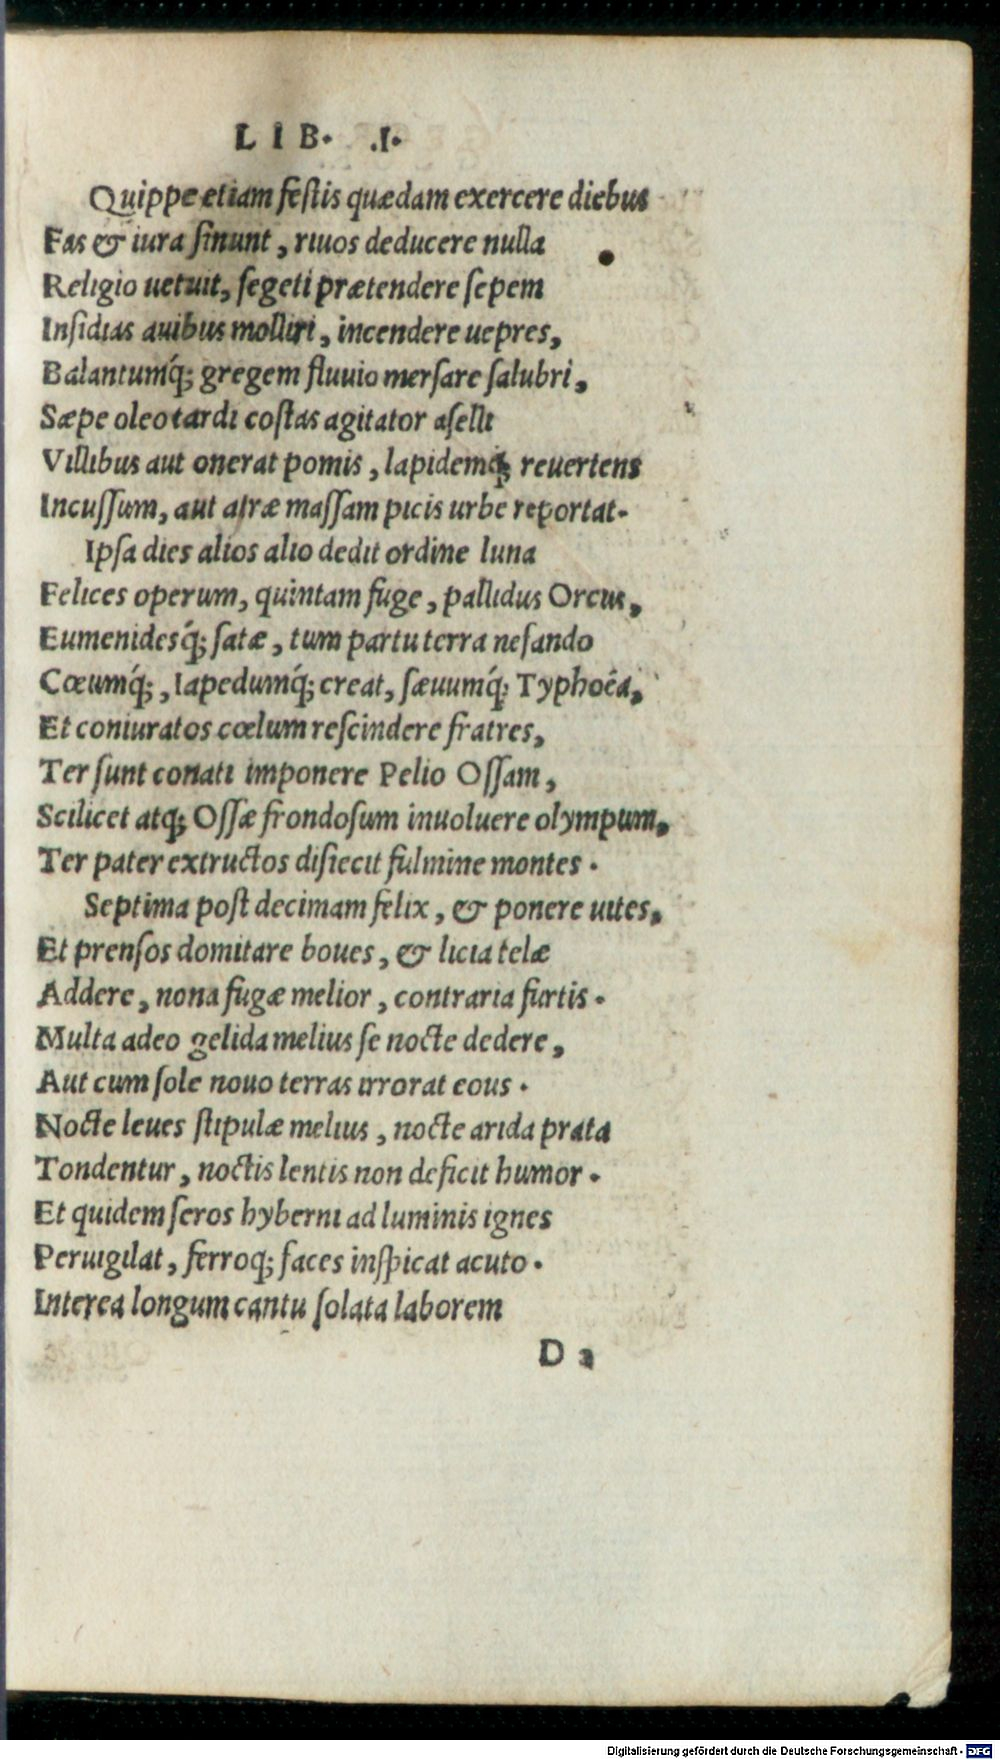 LIB. .I.
Quippe etiam feſtis quædam exercere diebus
Fas & iura ſinunt, riuos deducere nulla
Religio uetuit, ſegeti prætendere ſepem
Inſidias auibus moliri, incendere uepres,
Balantumq́; gregem fluuio merſare ſalubri,
Sæpe oleo tardi coſtas agitator aſelli
Villibus aut onerat pomis, lapidemq; reuertens
Incuſſum, aut atræ maſſam picis urbe reportat.
Ipſa dies alios alio dedit ordine luna
Felices operum, quintam fuge, pallidus Orcus,
Eumenidesq́; ſatæ, tum partu terra neſando
Cœumq́;, Iapedumq́; creat, ſæuumq́; Typhoêa,
Et coniuratos cœlum reſcindere fratres,
Ter ſunt conati imponere Pelio Oſſam,
Scilicet atq; Oſſæ frondoſum inuoluere olympum,
Ter pater extructos diſiecit fulmine montes.
Septima poſt decimam felix, & ponere uites,
Et prenſos domitare boues, & licia telæ
Addere, nona fugæ melior, contraria furtis.
Multa adeo gelida melius ſe nocte dedere,
Aut cum ſole nouo terras irrorat eous.
Nocte leues ſtipulæ melius, nocte arida prata
Tondentur, noctis lentis non deficit humor.
Et quidem ſeros hyberni ad luminis ignes
Peruigilat, ferroq; faces inſpicat acuto.
Interea longum cantu ſolata laborem
D 2
Digitalisierung gefördert durch die Deutsche Forschungsgemeinschaft - DFG